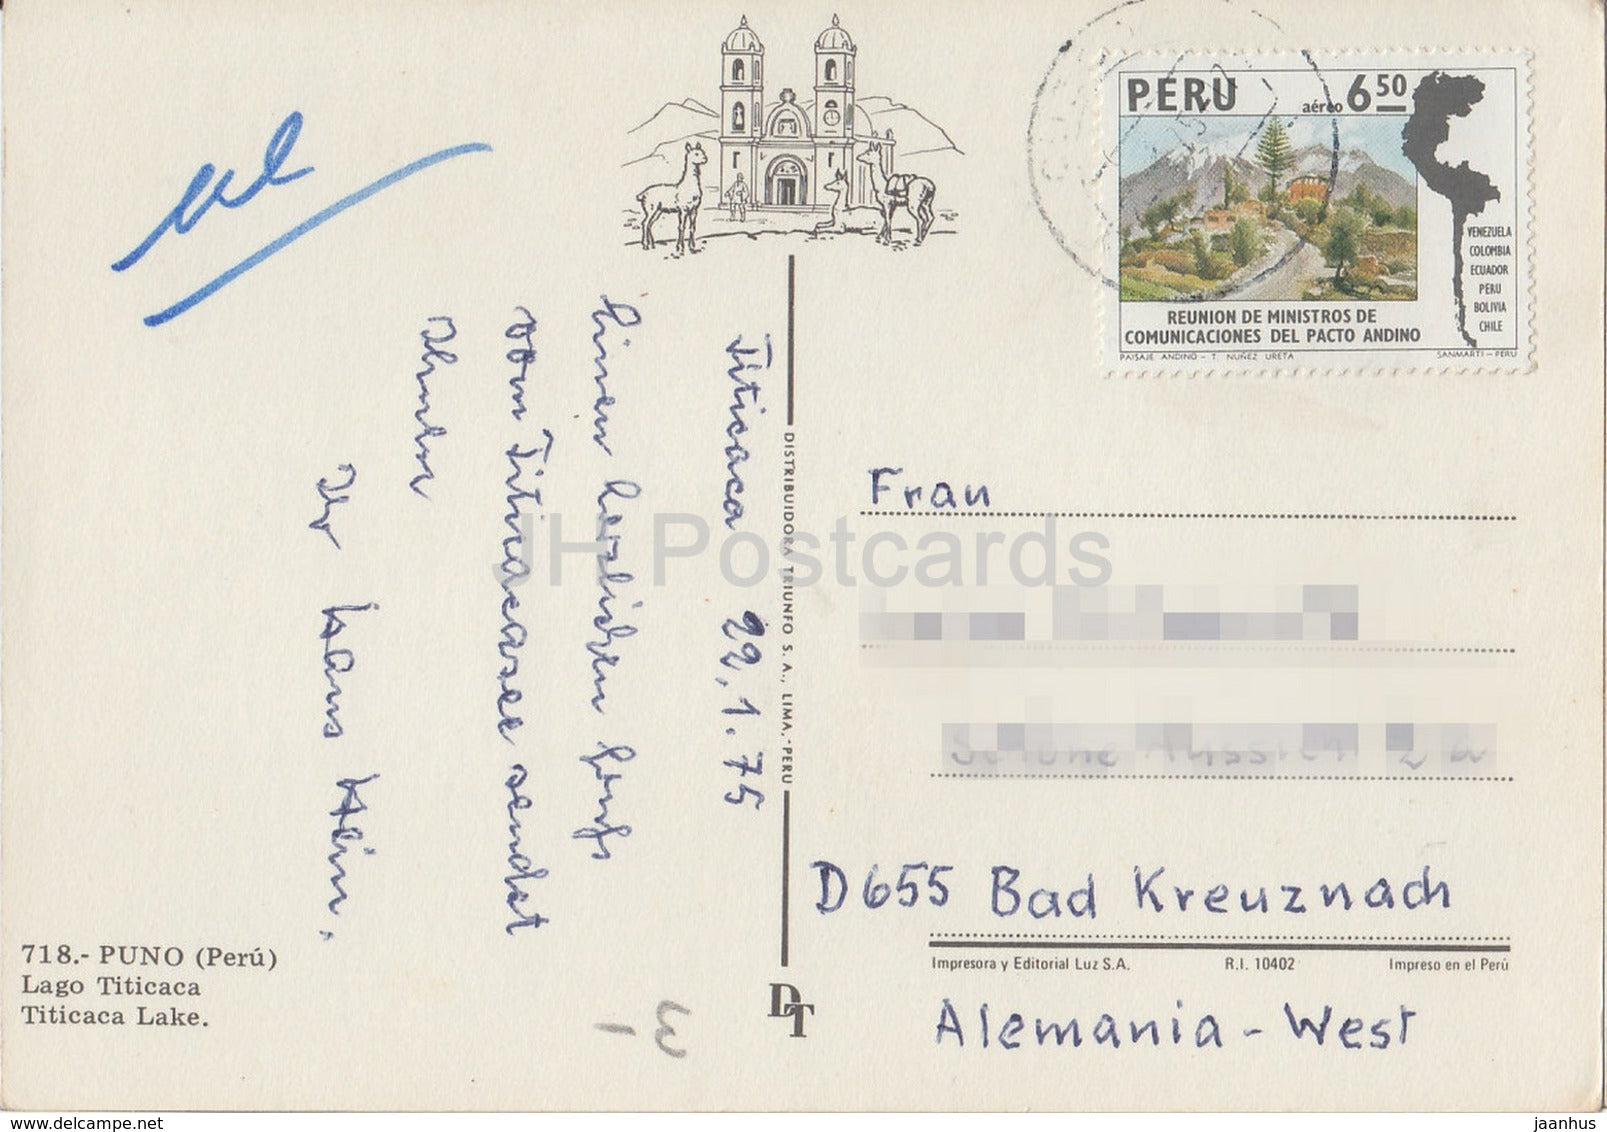 al
Titicaca 22.1.75
Einen herzlichen Gruß
vom Titicacasee sendet
Ihnen
Ihr Hans Klein.
718.- PUNO (Perú)
Lago Titicaca
Titicaca Lake.
DISTRIBUIDORA TRIUNFO S. A., LIMA,-PERU
DT
PERU aéreo 6 50
VENEZUELA
COLOMBIA
ECUADOR
PERU
BOLIVIA
CHILE
REUNION DE MINISTROS DE
COMUNICACIONES DEL PACTO ANDINO
PAISAJE ANDINO - T. NUÑEZ URETA SANMARTI - PERU
Frau
D655 Bad Kreuznach
Impresora y Editorial Luz S.A. R.I. 10402 Impreso en el Perú
Alemania - West
JH Postcards
www.delcampe.net
jaanhus